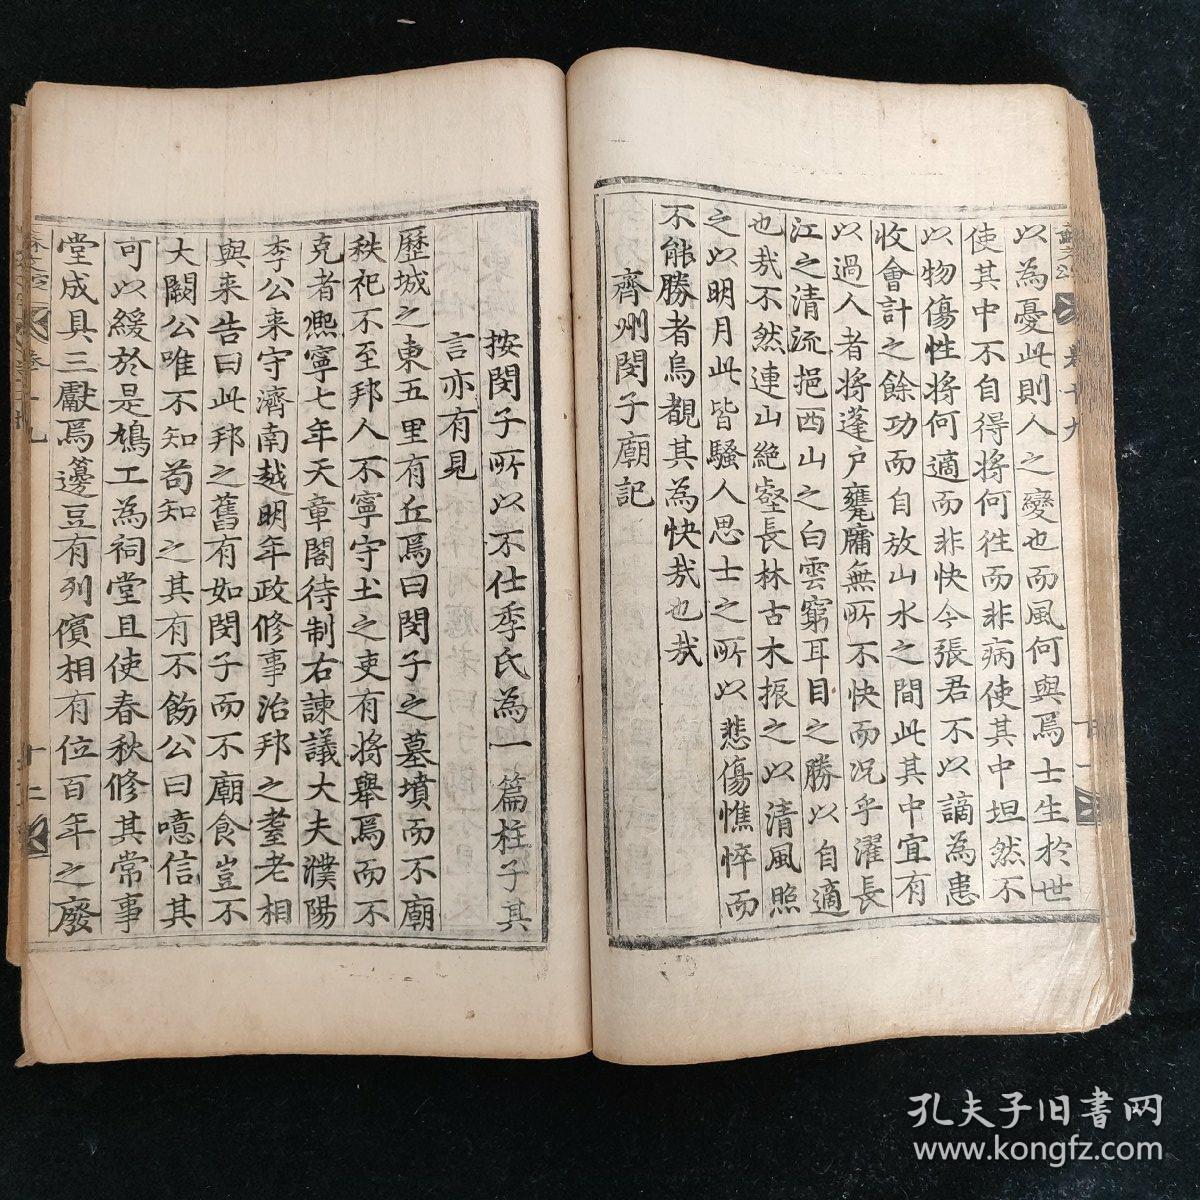 以為憂此則人之變也而風何與焉士生於世
使其中不自得將何徃而非病使其中坦然不
以物傷性將何適而非快今張君不以謫為患
收會計之餘功而自放山水之間此其中宜有
以過人者將蓬戶甕牖無所不快而况乎濯長
江之清流挹西山之白雲窮耳目之勝以自適
也㦲不然連山絶壑長林古木振之以清風照
之以明月此皆騷人思士之所以悲傷憔悴而
不能勝者烏覩其為快㦲也㦲
齊州閔子廟記
按閔子所以不仕季氏為一篇柱子其
言亦有見
歷城之東五里有丘焉曰閔子之墓墳而不廟
秩祀不至邦人不寧守土之吏有將舉焉而不
克者熈寧七年天章閣待制右諫議大夫濮陽
李公来守濟南越明年政修事治邦之耋老相
與来告曰此邦之舊有如閔子而不廟食豈不
大闕公唯不知苟知之其有不飭公曰噫信其
可以緩於是鳩工為祠堂且使春秋修其常事
堂成具三獻焉籩豆有列儐相有位百年之廢
卷十九
十二
孔夫子旧书网
www.kongfz.com